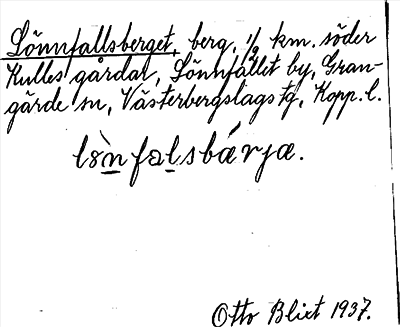 Lönnfallsberget, berg, 1/2 km. söder
Kulles gårdar, Lönnfallet by, Gran-
gärde sn, Västerbergslags tg, Kopp. l.
lön̲fal̲sbærjæ.
Otto Blixt 1937.